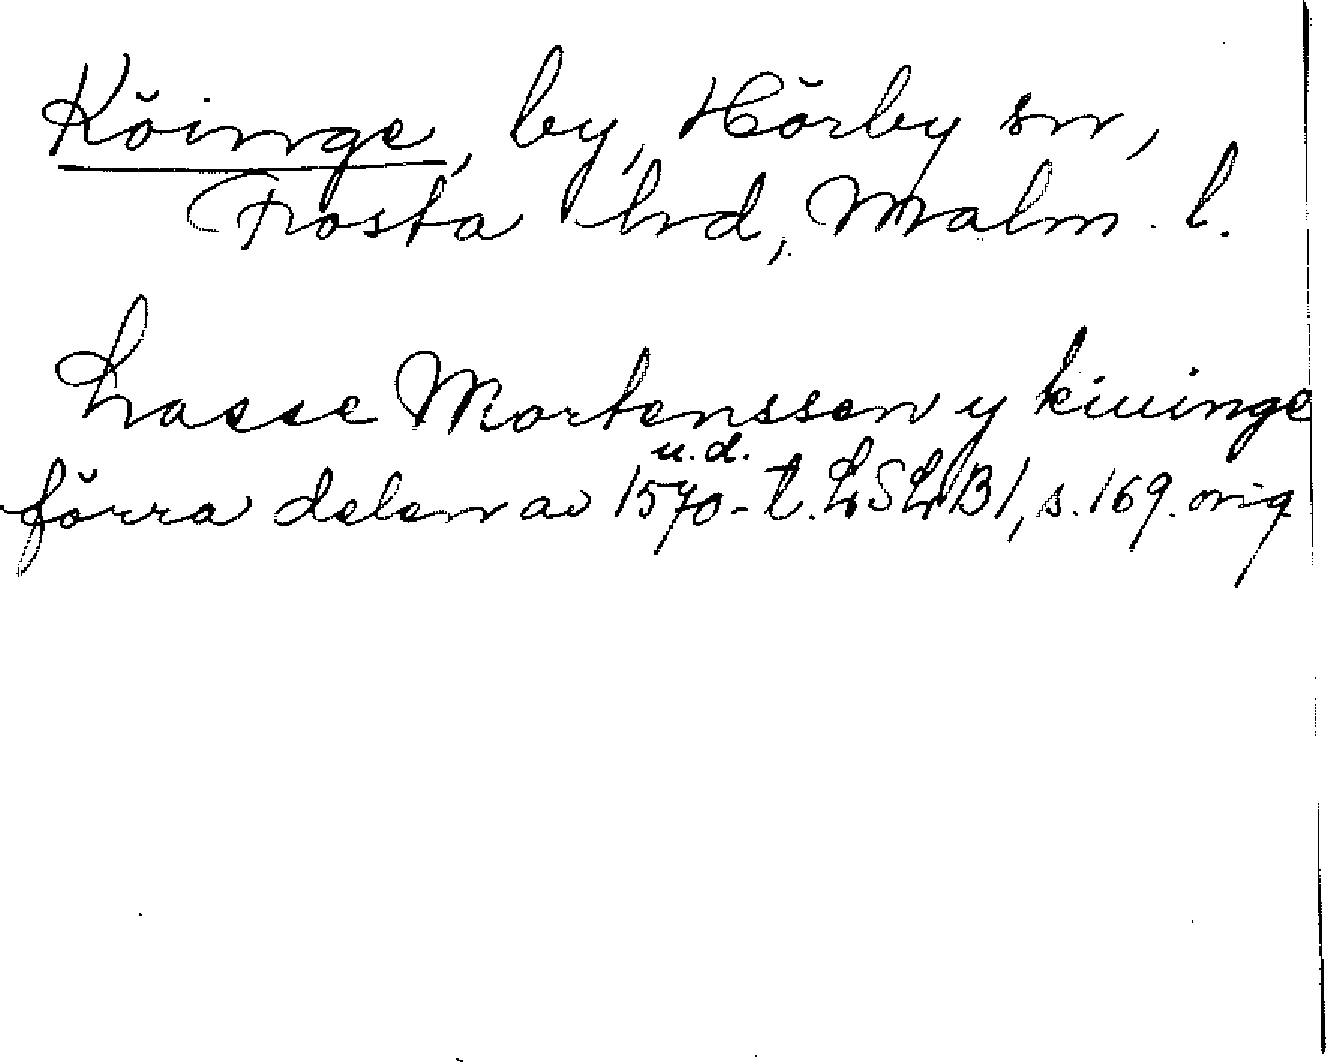 Köinge, by, Hörby sn,
Frosta hd, Malm. l.
Lasse Mortenssen y kiuinge
u.d.
förra delen av 1570-t. LSLB1, s. 169. orig